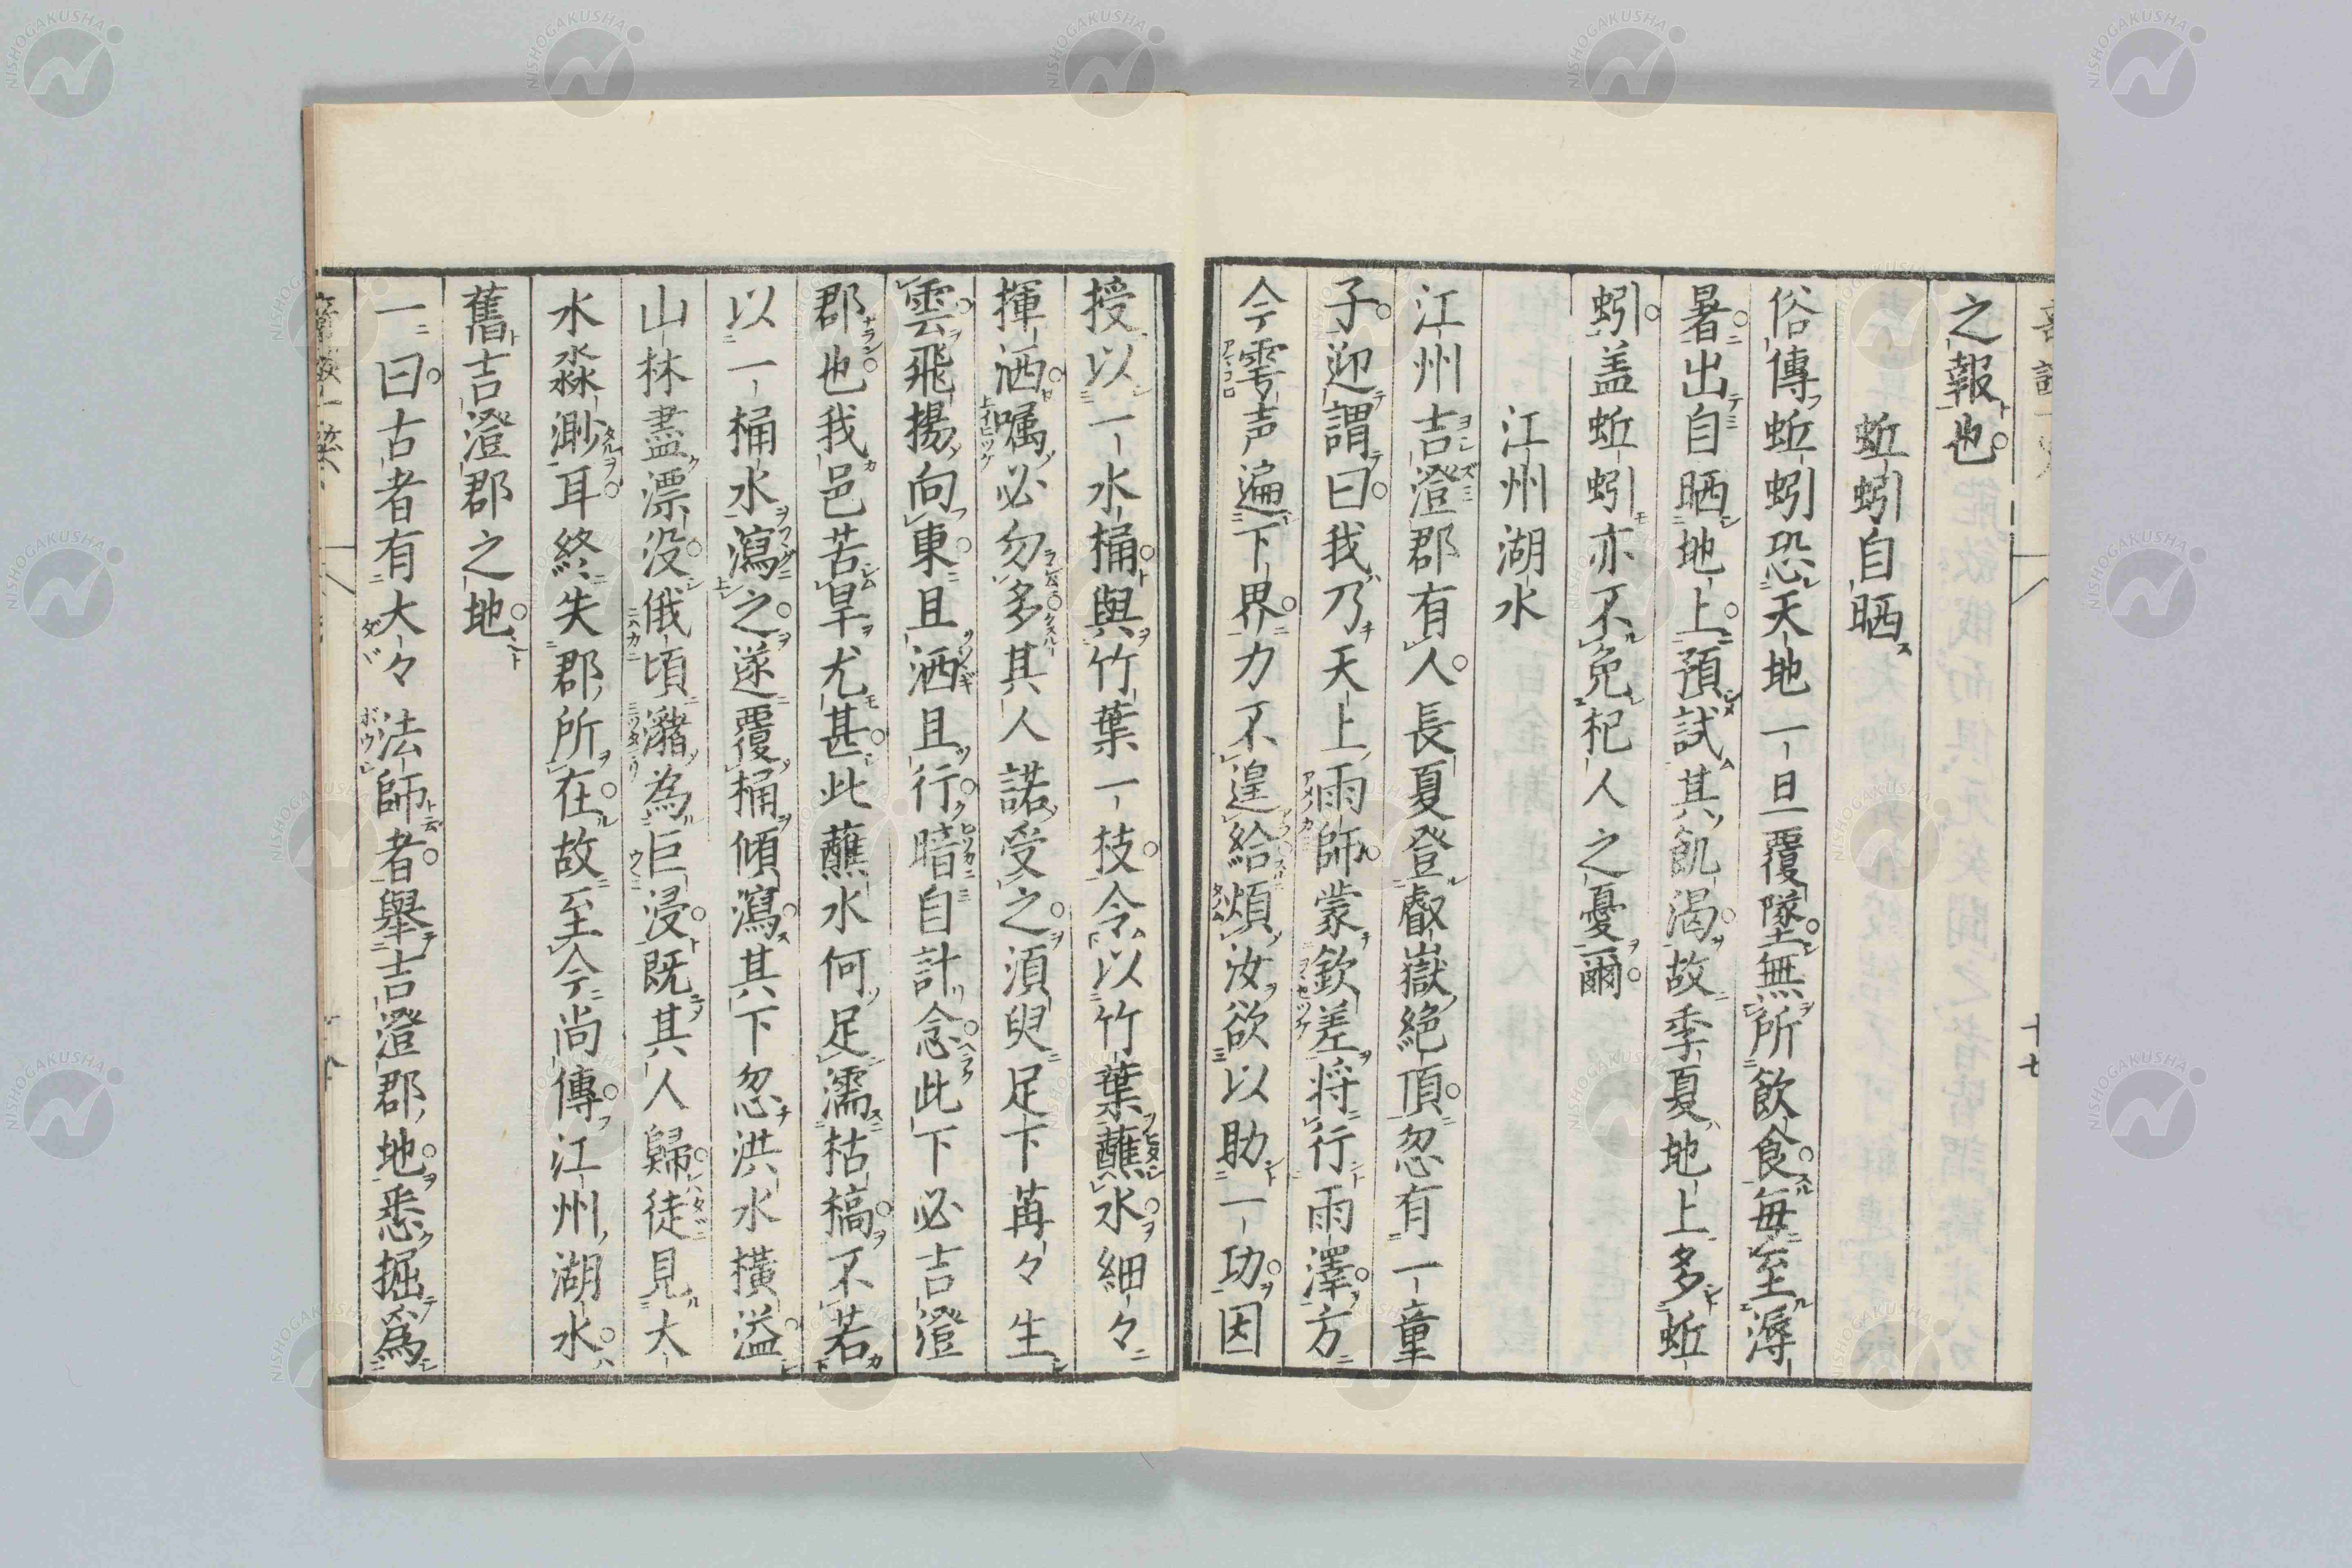 之報也。
蚯蚓自晒
俗傳蚯蚓恐天地一旦覆墜。無所飲食。毎至溽
暑。出自晒地上。預試其飢渴。故季夏地上多蚯
蚓。盖蚯蚓亦不免杞人之憂爾。
江州湖水
江州吉澄郡有人。長夏登叡嶽絶頂。忽有一童
子。迎謂曰。我乃天上雨師。蒙欽差将行雨澤。方
今雩声遍下界。力不遑給煩汝欲以助一功。因
授以一水桶。與竹葉一枝。令以竹葉蘸水。細々
揮洒。嘱必勿。多其人諾受之。湏臾足下苒々生
雲。飛揚向東。且洒且行。暗自計念。此下必吉澄
郡也。我邑苦旱尤甚。此蘸水何足濡枯槁。不若
以一桶水瀉之。遂覆桶傾瀉。其下忽洪水横溢。
山林盡漂没。俄頃瀦為巨浸。既其人歸。徒見大
水淼渺耳。終失郡所在。故至今尚傳。江州湖水。
舊吉澄郡之地。
一曰。古者有大々法師者。擧吉澄郡地。悉掘爲
十七
NISHOGAKUSHA